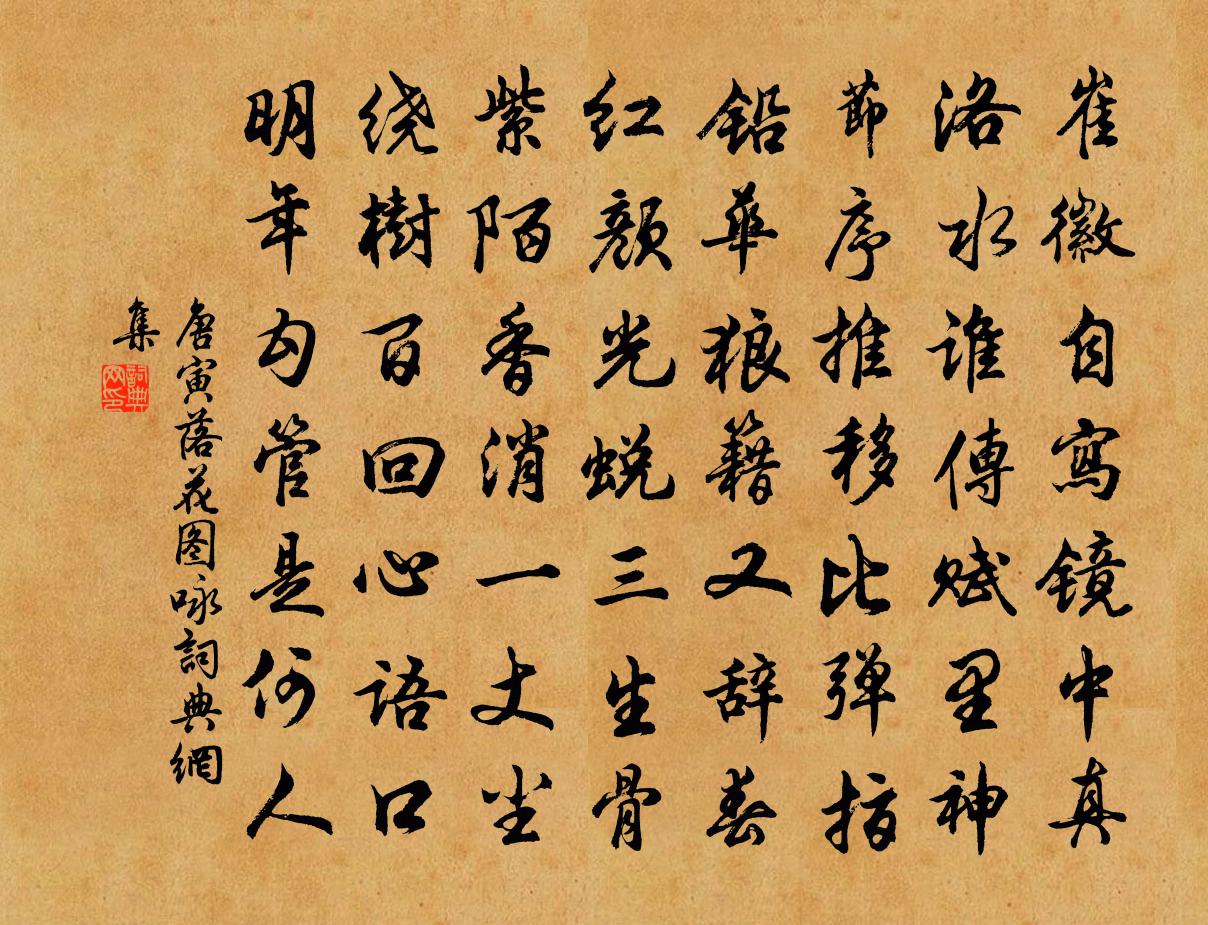 崔徽自寫镜中真
洛水谁傳赋里神
節序推移比弹指
鉛華狼籍又辞春
红颜光蜕三生骨
紫陌香消一丈尘
绕樹百回心语口
明年勾管是何人
唐寅落花图咏詞典網
集
詞典网印